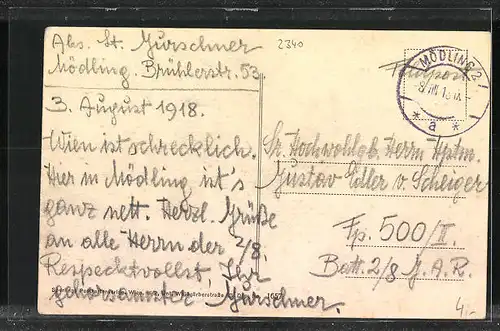 Abs. Lt. Gurschner
Mödling. Brühlerstr. 53
2340
3. August 1918.
Wien ist schrecklich.
Hier in Mödling ist's
ganz nett. Herzl. Grüße
an alle Herrn der 2/8.
Respecktvollst, Ihr
gehorsamster Gurschner.
MÖDLING 2
* a *
Feldpost
Sr. Hochwohlgb. Herrn Hptm.
Gustav Edler v. Scheiger
Fp. 500/II.
Batt. 2/8 G.A.R.
4,-